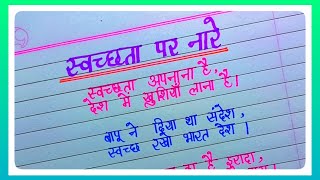 स्वच्छता पर नारे
स्वच्छता अपनाना है,
देश में खुशियाँ लाना है।
बापू ने दिया था संदेश,
स्वच्छ रखो भारत देश।
है इरादा,